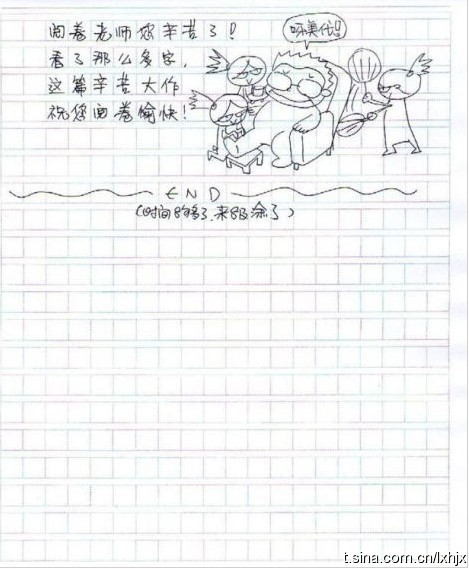 阅卷老师你辛苦了!
看了那么多字,
这篇辛苦大作
祝您阅卷愉快!
END
(时间 了,来 涂了)
t.sina.com.cn/lxhjx